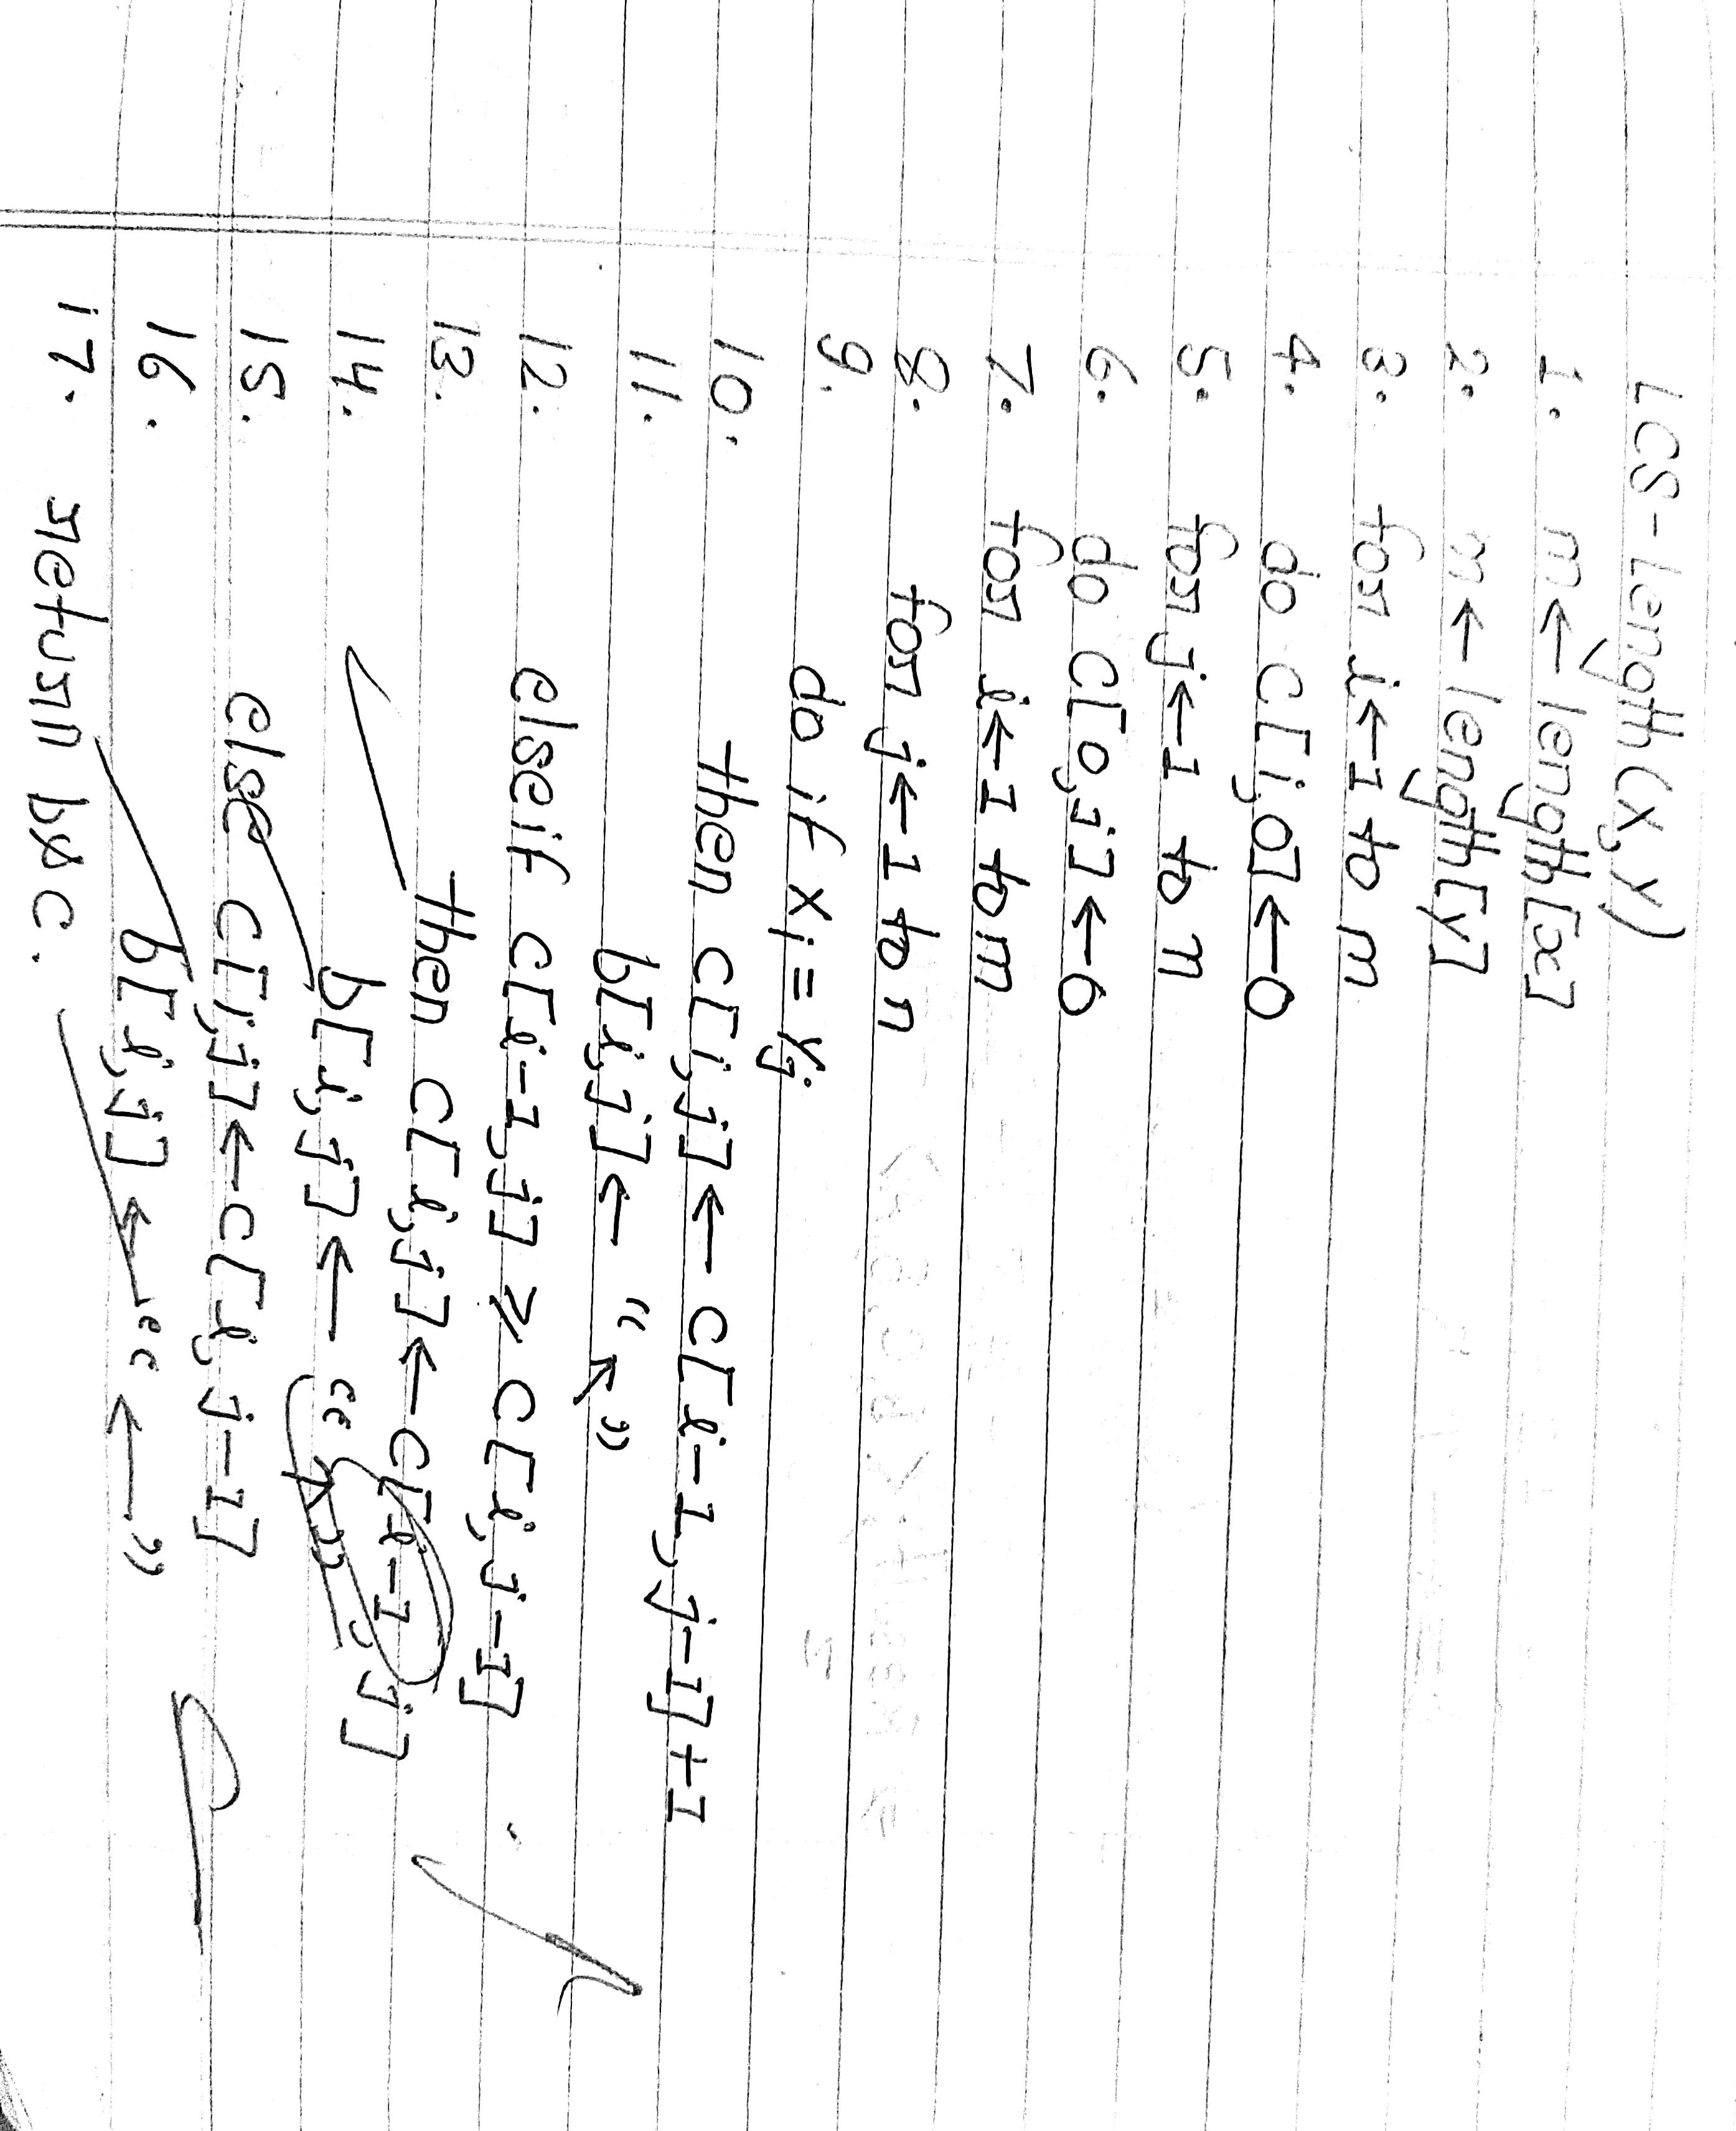 LCS-Length(X,Y)
1. m ← length[x]
2. n ← length[y]
3. for i ← 1 to m
4. do c[i,0] ← 0
5. for j ← 1 to n
6. do c[0,j] ← 0
7. for i ← 1 to m
8. for j ← 1 to n
9. do if xi = yj
10. then c[i,j] ← c[i-1,j-1]+1
11. b[i,j] ← "↖"
12. elseif c[i-1,j] ≥ c[i,j-1]
13. then c[i,j] ← c[i-1,j]
14. b[i,j] ← "↑"
15. else c[i,j] ← c[i,j-1]
16. b[i,j] ← "←"
17. return b & c.